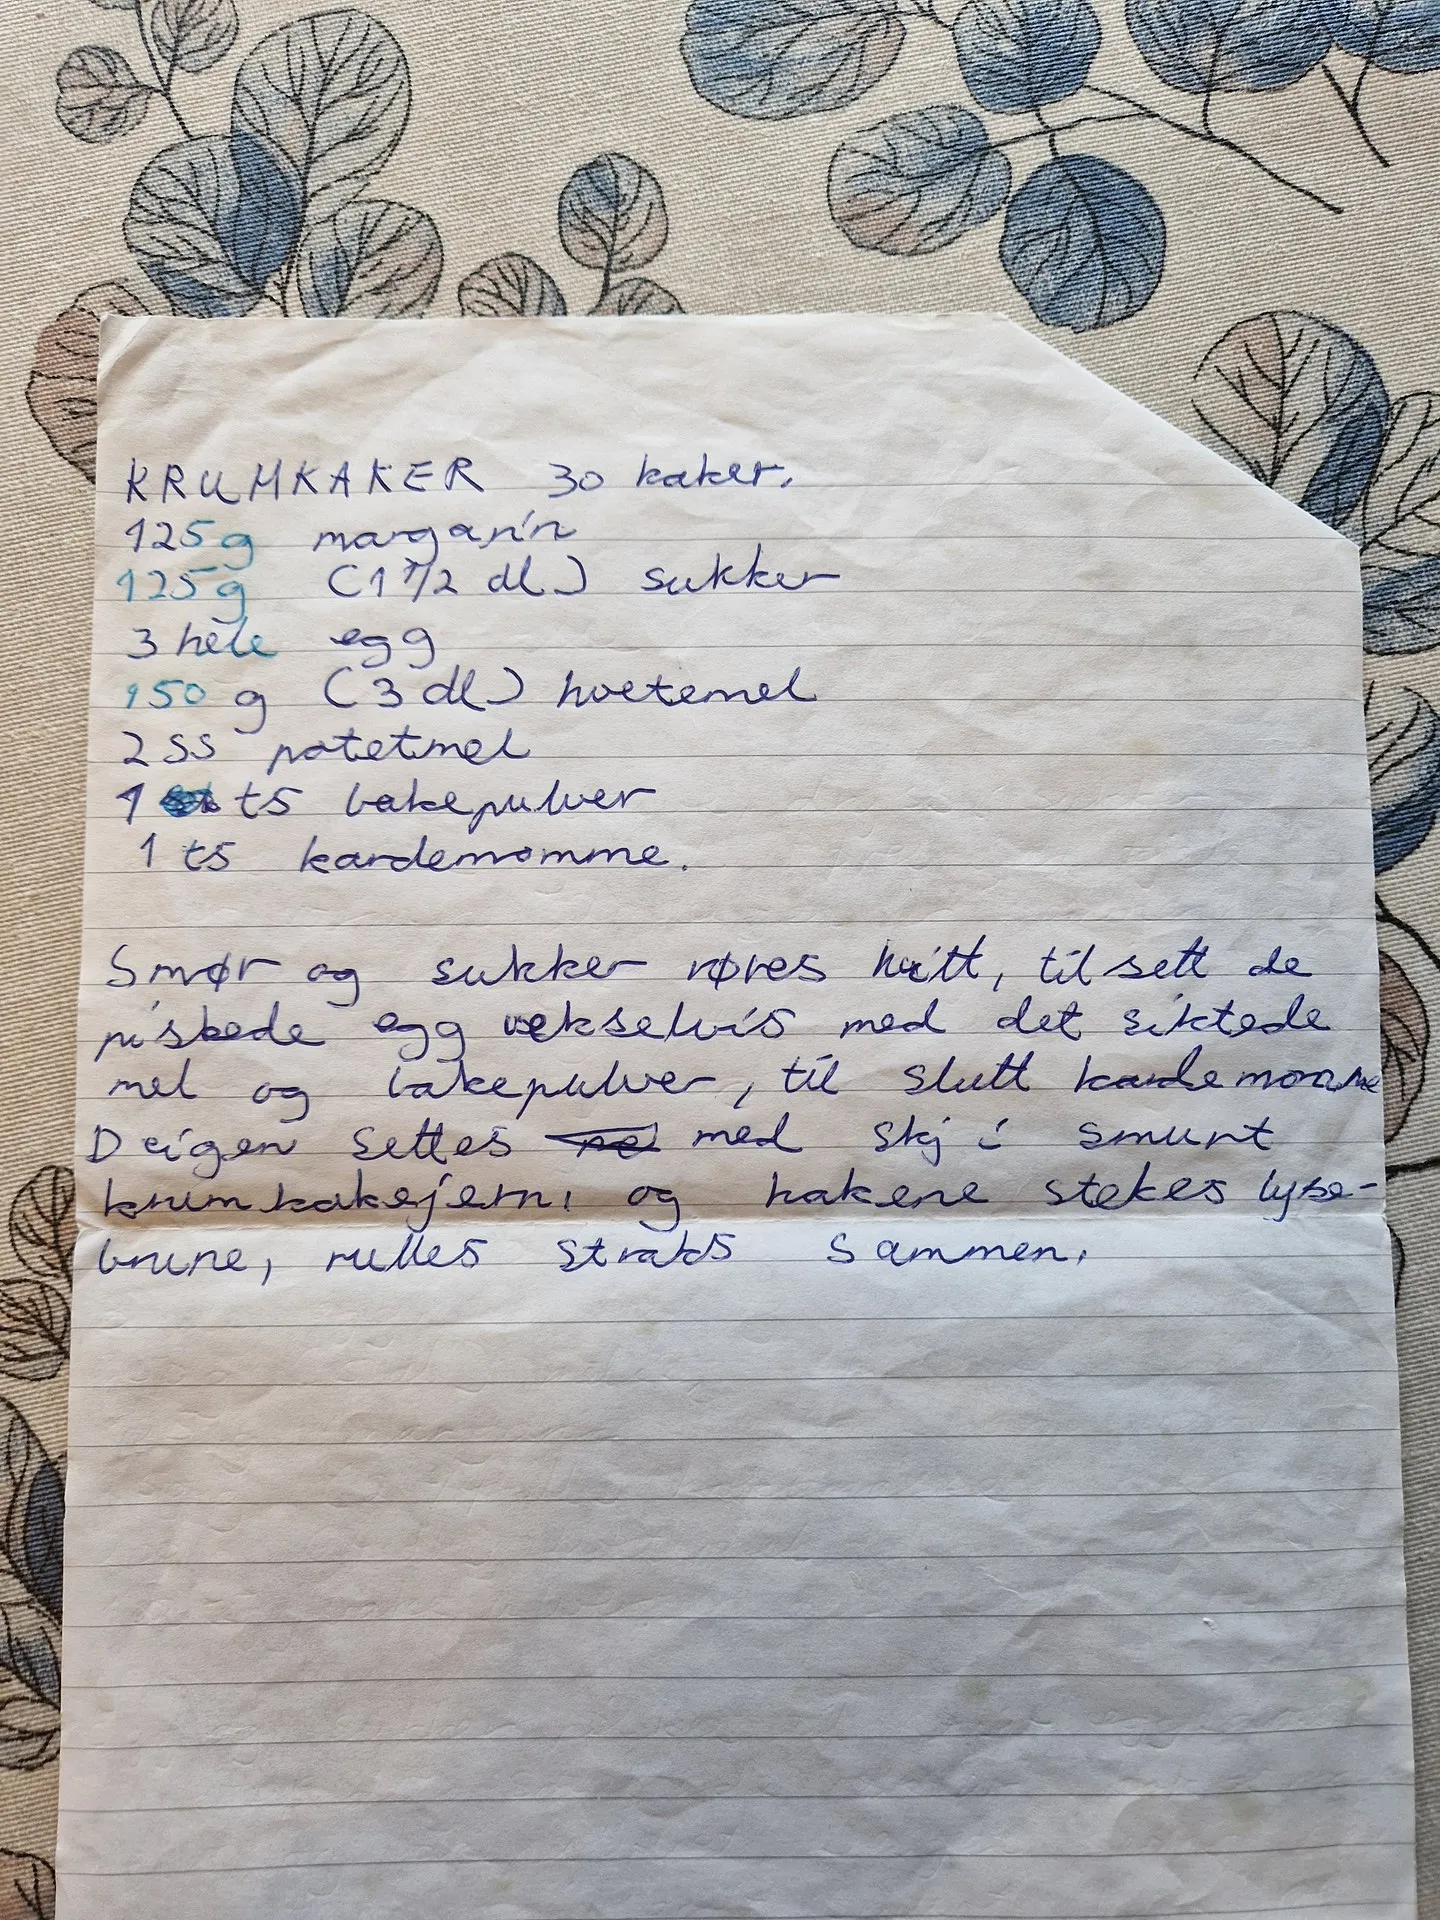 KRUMKAKER 30 kaker.
125g margarin
125g (1 1/2 dl) sukker
3 hele egg
150 g (3 dl) hvetemel
2 SS potetmel
1 ts bakepulver
1 ts kardemomme.
Smør og sukker røres hvitt, til sett de
piskede egg vekselvis med det siktede
mel og bakepulver, til slutt kardemomme
Deigen settes med skj i smurt
krumkakejern, og kakene stekes lyse-
brune, rulles straks sammen.